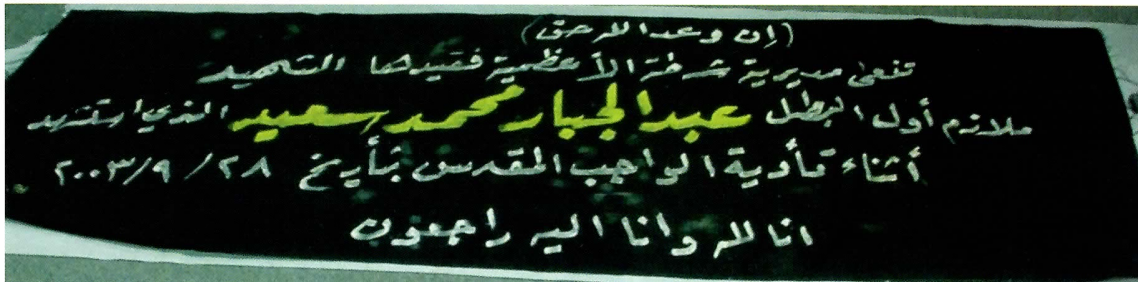 (إن وعد الله حق)
تنعى مديرية شرطة الأعظمية فقيدها الشهيد
ملازم أول البطل عبد الجبار محمد سعيد الذي استشهد
أثناء تأدية الواجب المقدس بتأريخ ٢٨ / ٩ / ٢٠٠٣
انا لله وانا اليه راجعون